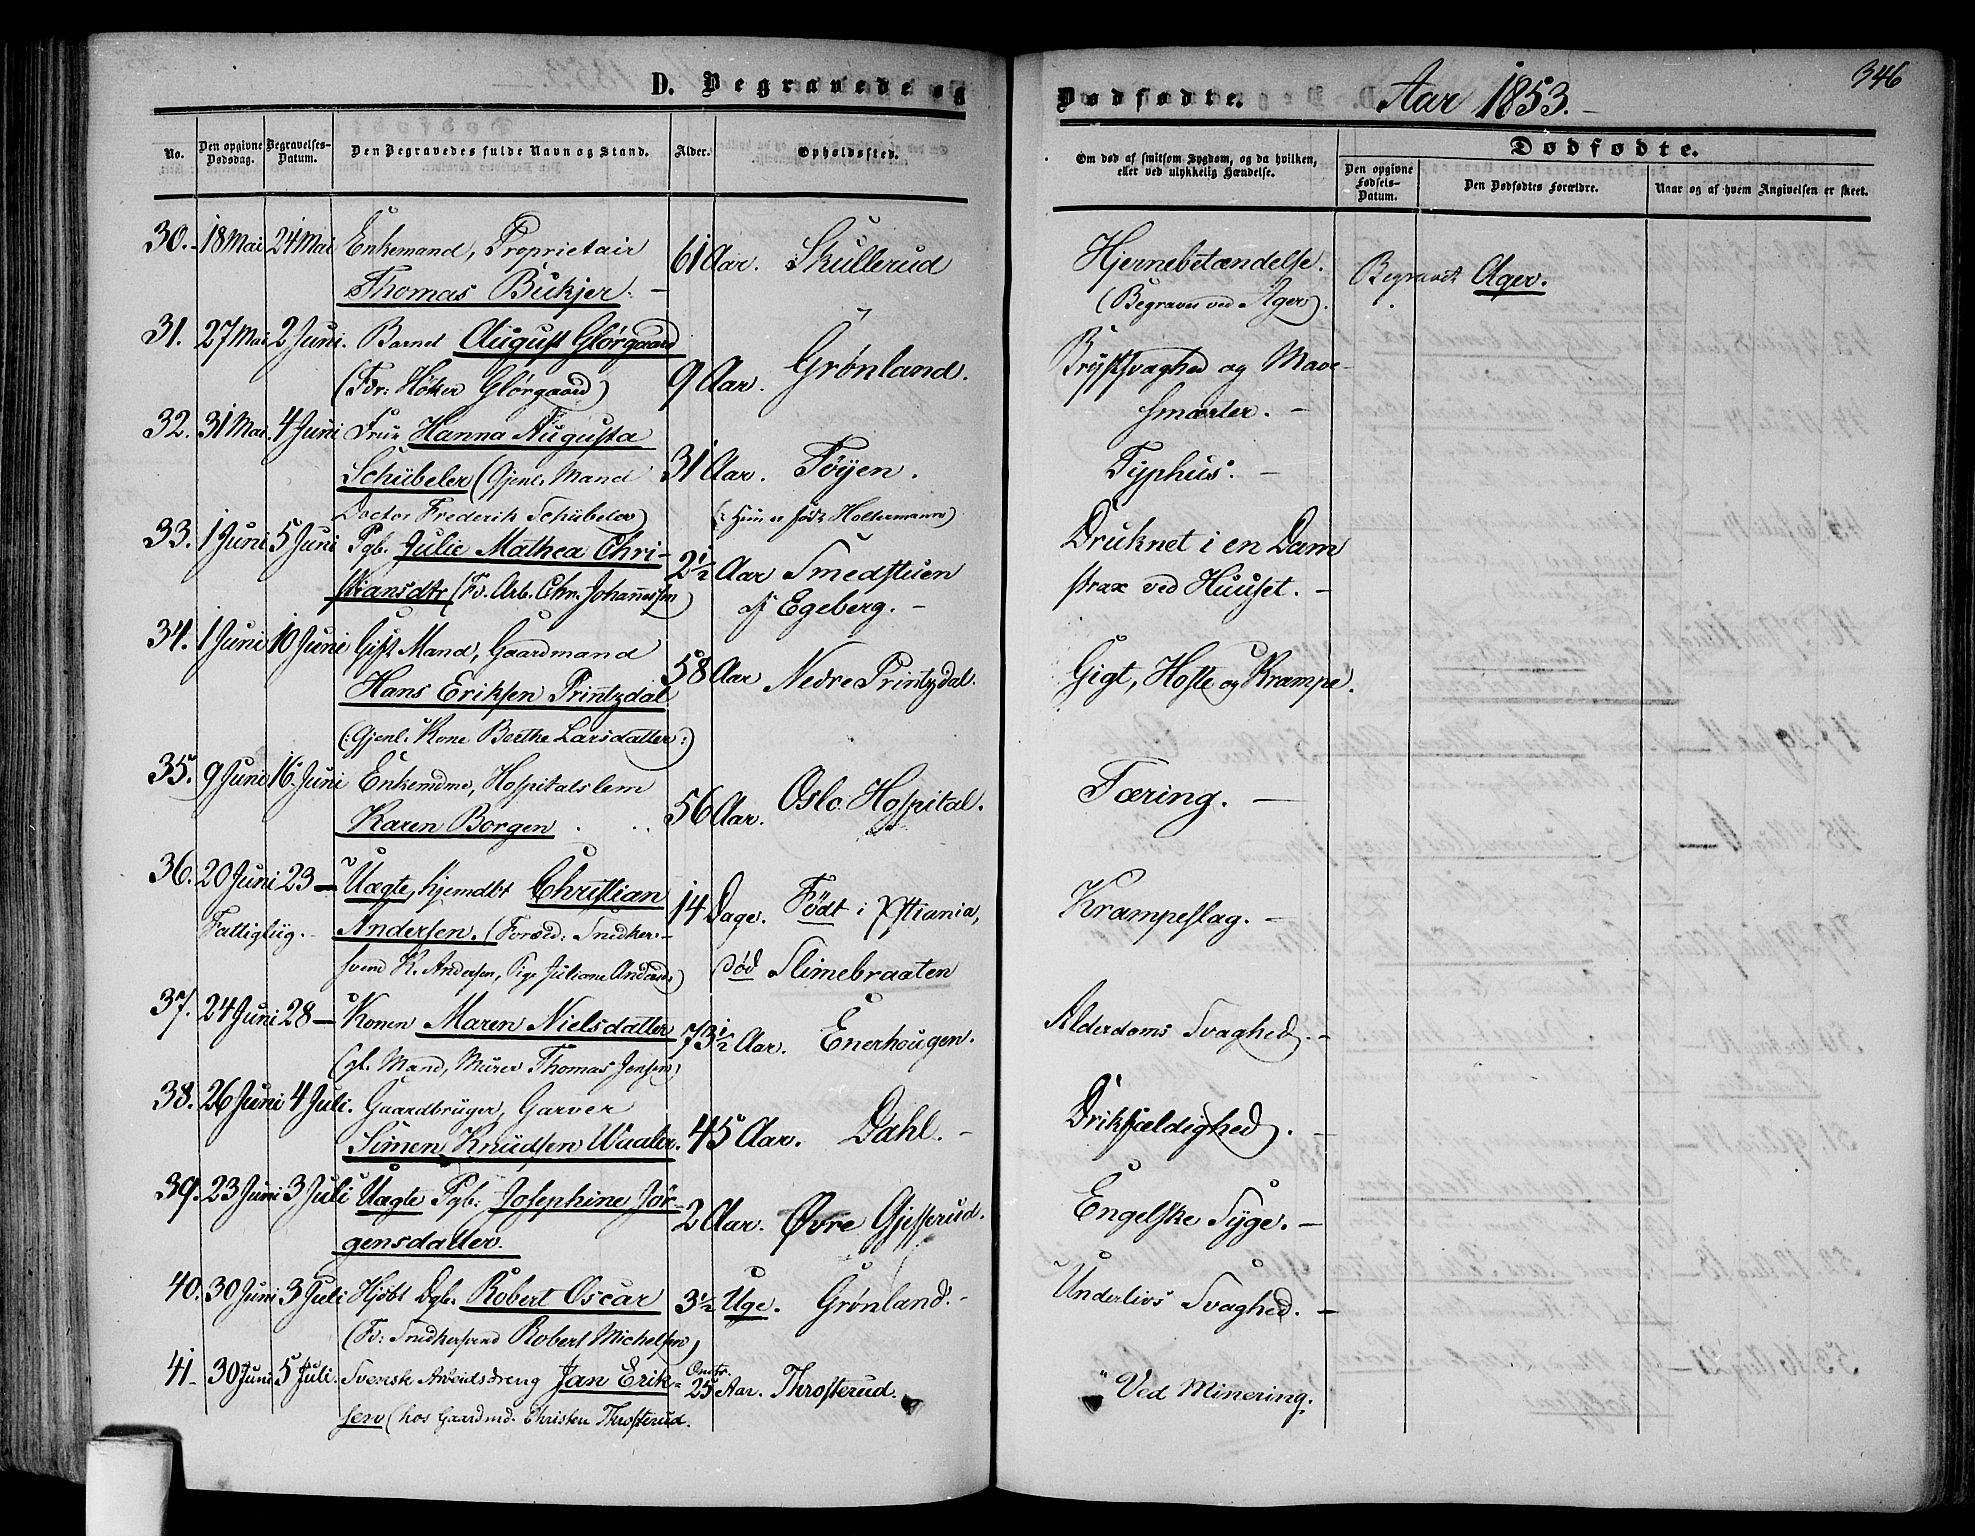 D. Begravede og
Dødfødte. Aar 1853.
346
No.
Den opgivne Dødsdag.
Begravelses-Datum.
Den Begravedes fulde Navn og Stand.
Alder.
Opholdssted.
Om død af smitsom Sygdom, og da hvilken,
eller ved ulykkelig Hændelse.
Dødfødte.
Den opgivne Fødsels-Datum.
Den Dødfødtes Forældre.
Naar og af hvem Angivelsen er skeet.
30. 18 Mai 24 Mai Enkemand, Proprietair 61 Aar. Skullerud Hjernebetændelse. Begravet Ager.
Thomas Bükjer. (Begraves ved Ager).
31. 27 Mai 2 Juni. Barnet August Glørgaard 9 Aar. Grønland. Brystsvaghed og Mave-
(For: Høker Glørgaard) smerter. –
32. 31 Mai 4 Juni Frue Hanna Augusta 31 Aar. Tøyen. Typhus. –
Schübeler (Gjenl. Mand
Doctor Frederik Schübeler) (: Hun er født Holtermann)
33. 1 Juni 5 Juni Pgb. Julie Mathea Chri- 2½ Aar Smedstuen Druknet i en Dam
stiansdtr (Fv. Arb. Chr. Johannessen) af Egeberg. – strax ved Huuset. –
34. 1 Juni 10 Juni Gift Mand, Gaardmand 58 Aar Nedre Printzdal. Gigt, Hoste og Krampe.
Hans Eriksen Printzdal
(: Gjenl. Kone Berthe Larsdatter :)
35. 9 Juni 16 Juni Enkemdme, Hospitalslem 56 Aar. Oslo Hospital. Tæring. –
Karen Borgen
36. 20 Juni 23 – Uægte, hjemdbt Christian 14 Dage. Født i Xstiania, Krampeslag. –
Fattigliig. – Andersen. (Foræld: Snedker-
svend K. Andersen, Pige Juliane Andersd) død Slimebraaten
37. 24 Juni 28 – Konen Maren Nielsdatter 73½ Aar. Enerhougen. Alderdoms Svaghed. –
(gl. Mand, Murer Thomas Jensen)
38. 26 Juni 4 Juli. Gaardbruger, Garver 45 Aar. Dahl. – Drikfældighed. –
Simen Knudsen Waaler.
39. 23 Juni 3 Juli Uægte Pgb: Josephine Jör- 2 Aar. Øvre Gjesserud. Engelske Syge. –
gensdatter.
40. 30 Juni 3 Juli Hjdbt Dgb. Robert Oscar 3½ Uge. Grønland. – Underlivs Svaghed. –
(Fv: Snedkersvend Robert Michelsen)
41. 30 Juni 5 Juli. Svensk Arbeidsdreng Jan Erik- Omtr. 25 Aar. Throsterud. Ved Minering.
sen (hos Gaardmd. Christen Throsterud.